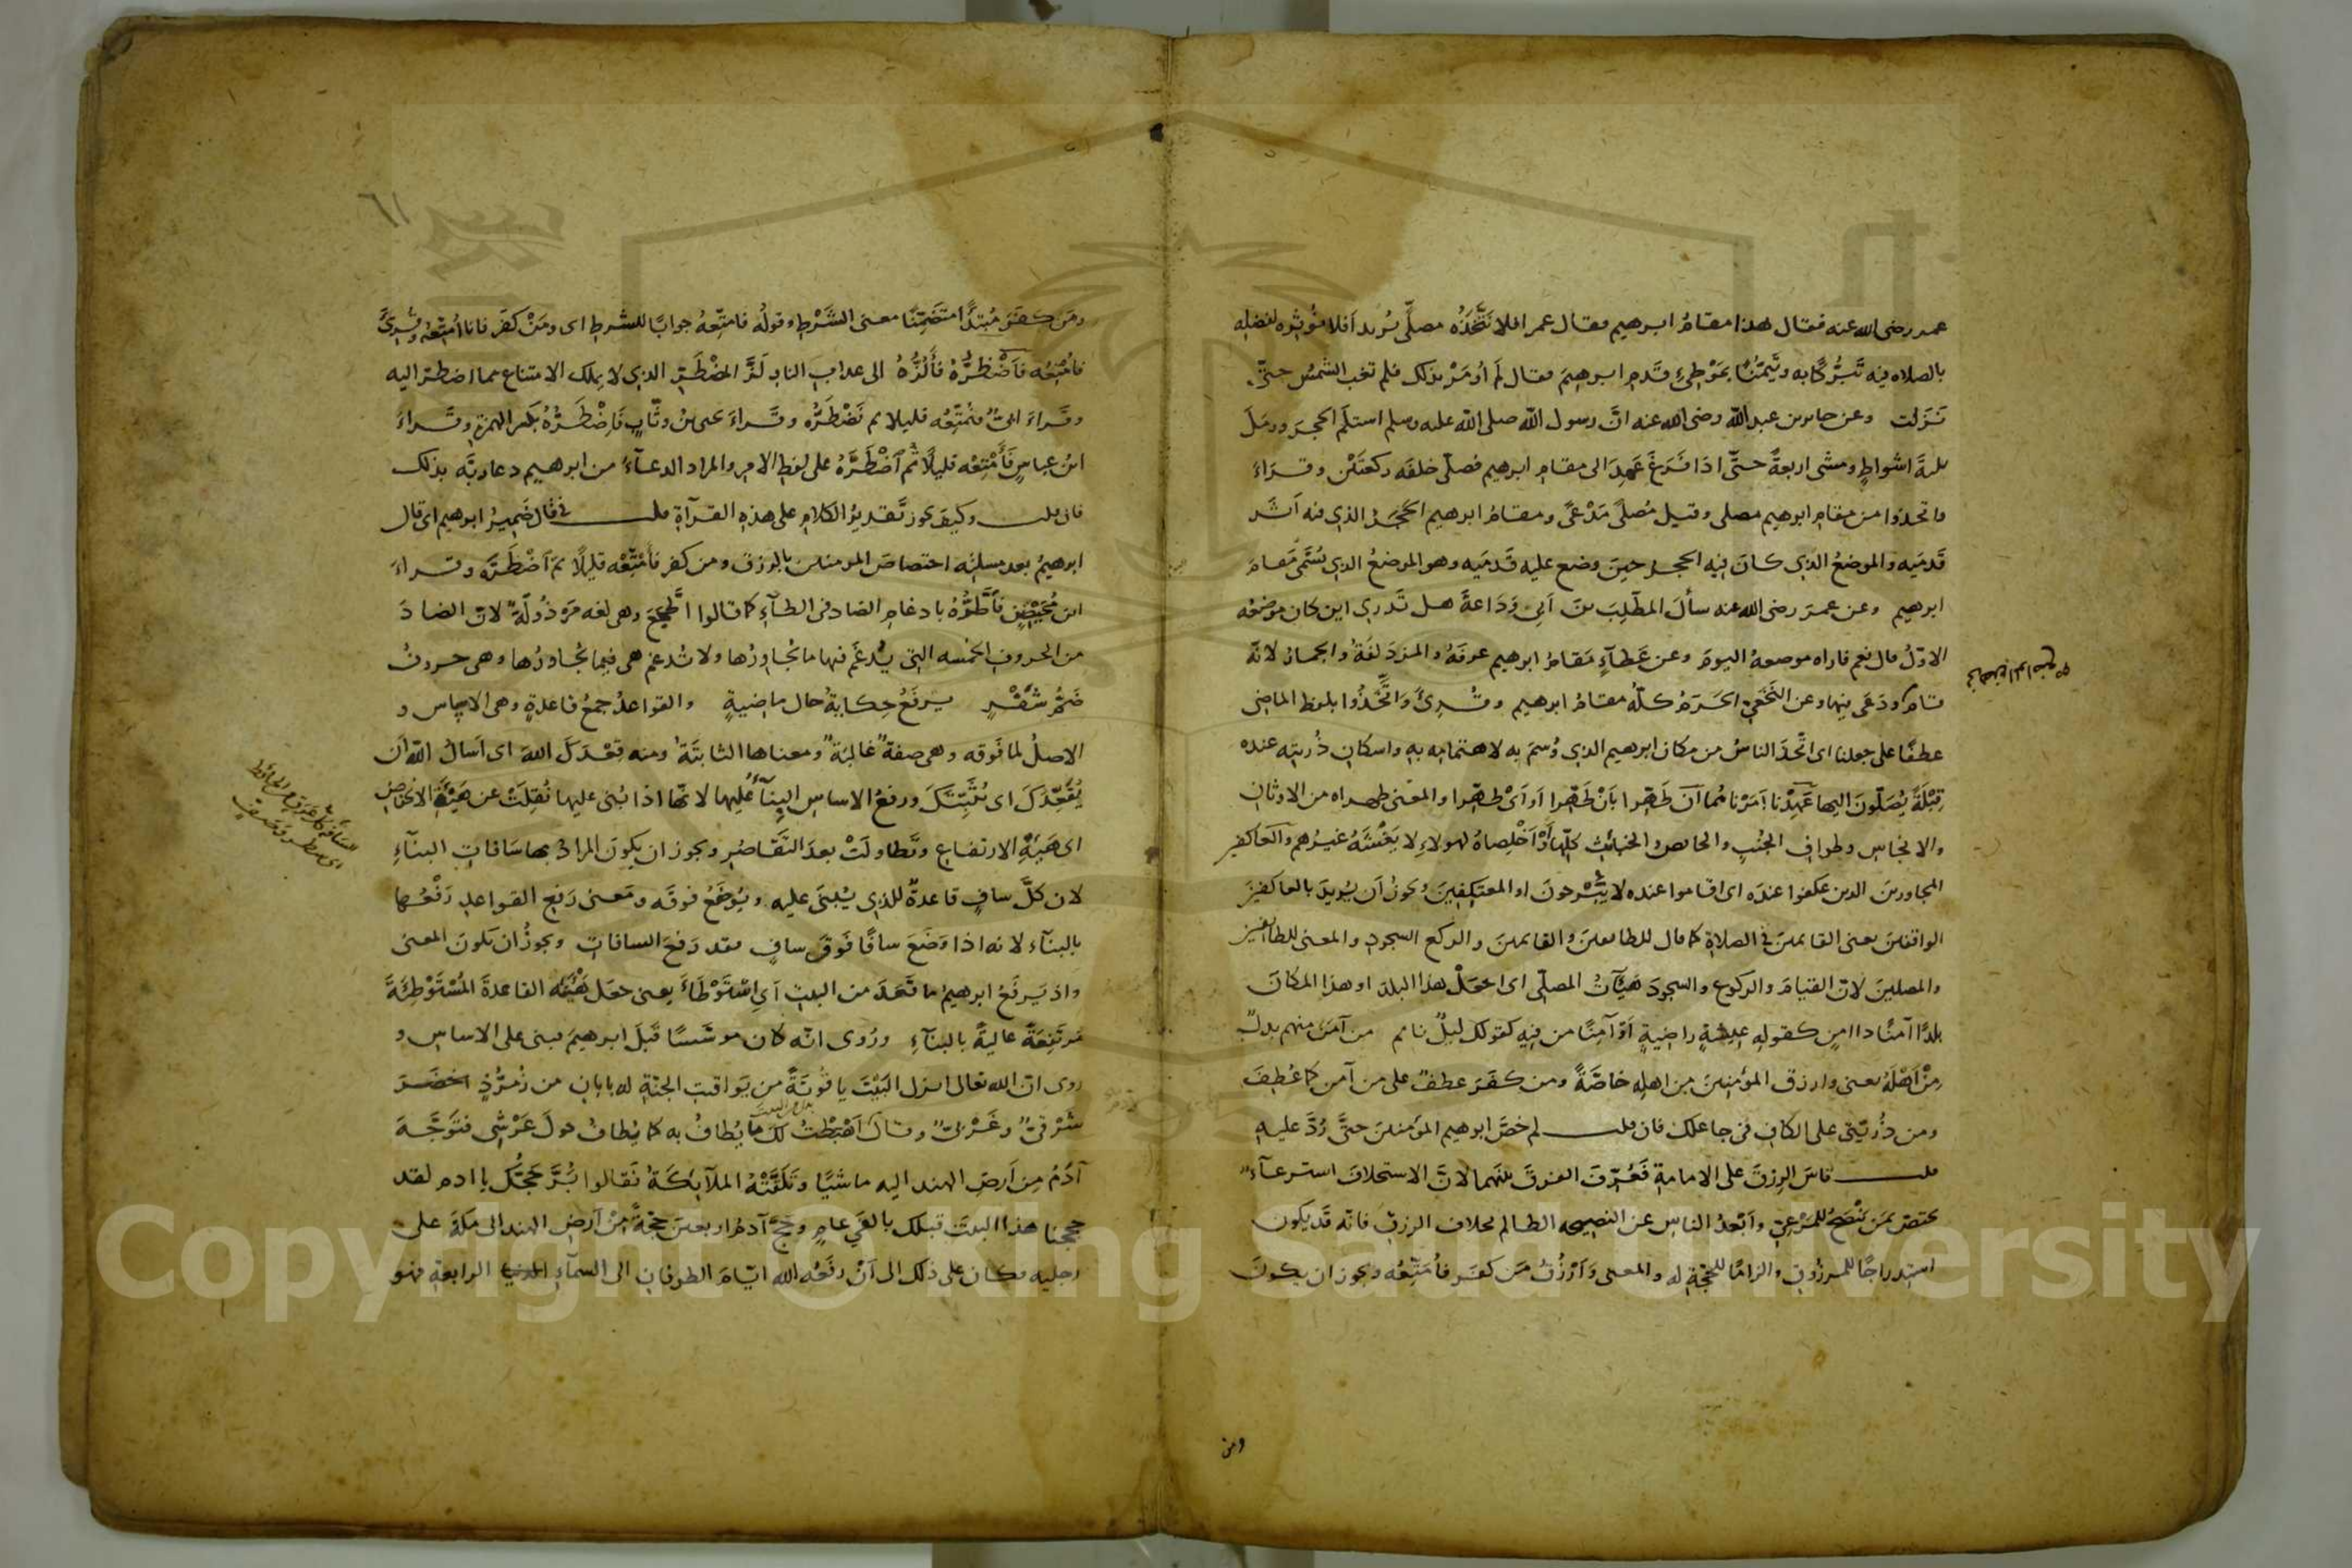 عمر رضى الله عنه فقال هذا مقامُ ابرهيم فقال عمر افلا نَتَّخِذُه مصلًّى يُريد اَفلا نُؤثِره لفضله
بالصلاه فيه تَبَرُّكًا به وتَيَمُّنًا بمَوْطِئِ قَدمِ ابرهيمَ فقال لَم اُومَرْ بذلك فلم تغب الشمسُ حتّى
نَزَلت وعن جابر بن عبد الله رضى الله عنه انّ رسول الله صلى الله عليه وسلم استلَم الحجرَ ورمَلَ
ثلثةَ اشواطٍ ومشى اربعةً حتّى اذا فَرَغَ عَمِدَ الى مقامِ ابرهيم فصلّى خلفَه ركعتَيْن وقرَاءَ
واتخذوا من مقامِ ابرهيم مصلى وقيل مُصلًّى مَدْعًى ومقامُ ابرهيم الحَجَرُ الذي فيه اَثَر
قَدمَيه والموضعُ الذي كانَ فيه الحجر حين وضع عليه قَدميَه وهو الموضعُ الذي يُسَمَّى مَقامَ
ابرهيم وعن عمرَ رضى الله عنه سألَ المطّلِبَ بنَ اَبى وَدَاعةَ هل تَدرى اين كان موضعُه
الاوّلُ قال نعم فاراه موضعهُ اليومَ وعن عَطآءٍ مَقامُ ابرهيم عرفَةُ والمزدَلفَةُ والجمار لانّه
قام ودَعَى فيها وعن النَّخَعِيّ الحَرَمُ كلّهُ مقامُ ابرهيم وقُرِئَ وَاتَّخَذُوا بلفظ الماضى
عطفًا على جعلنا اى اتّخذَ الناسُ من مكان ابرهيم الذي وُسِمَ به لاهتمامِه به واسكانِ ذُريتِه عنده
قِبْلَةً يُصَلّونَ اليها عَهِدْنا اَمَرْناهُما اَن طَهِّرا بأنْ طَهِّرا اَو اَىْ طَهِّرا والمعنى طهراه من الاوثان
والانجاسِ وطوافِ الجُنُبِ والحائض والخبائثِ كلِّها اَوْ اَخْلِصاهُ لهولاءِ لا يَغْشَهُ غيرُهم والعاكفين
المجاورينَ الذين عكفوا عندَه اى اقاموا عنده لا يَبْرحونَ او المعتكِفينَ ويجوزُ اَن يُريدَ بالعاكفينَ
الواقفينَ يعنى القائمينَ فى الصلاةِ كما قال للطائفينَ والقائمينَ والركع السجودِ والمعنى للطائفين
والمصلينَ لانّ القيامَ والركوع والسجودَ هَيْآتُ المصلّى اى اجعَلْ هذا البلدَ او هذا المكانَ
بلدًا آمنًا ذا امنٍ كقولِه عيشةٍ راضيةٍ اَوْ آمِنًا من فيه كقولك ليلٌ نائم من آمَنَ منهم بدلٌ
مِنْ اَهْلَهُ يعنى وارزق المؤمنينَ مِن اهلِه خاصّةً ومن كفَرَ عطفٌ على من آمن كما عُطِفَ
ومن ذُرّيّتى على الكافِ فى جاعلك فان قلت لم خصَّ ابرهيم المؤمنينَ حتَّى رُدَّ عليهِ
قلت قاسَ الرِزقَ على الامامةِ فَعُرِّفَ الفرقَ بينَهما لانّ الاستخلافَ استرعآءٌ
يختصّ بمَن يَنْصَحُ للمَرْعِىّ واَبْعدُ الناسِ عن النصيحه الظالم بخلاف الرزقِ فانّه قَد يكون
استدراجًا للمرزوقِ والزامًا للحُجّةِ له والمعنى وَاَرْزُقُ مَن كفَر فاُمَتِّعُه ويجوز ان يكونَ
ومن
ومَن كفَرَ مُبتدأ مُتَضَمِّنًا معنى الشَرْطِ وقولُه فامتِّعهُ جوابًا للشرطِ اى ومَنْ كفَر فانا اُمتِّعُه وقُرِئَ
فاُمْتِعُه فَأَضْطَرُّهُ فَألُزُّهُ الى عذابِ النارِ لَزَّ المُضْطَرِّ الذي لا يملك الامتناع مما اضطرّ اليه
وقَراءَ اُبَىٌّ فنُمَتِّعُه قليلا ثم نَضْطَرُّه وقَراءَ يحيى بنُ وثّابٍ فَاِضْطَرُّهُ بكسر الهمزةِ وقَراءَ
ابنُ عباسٍ فَأَمْتِعْه قليلًا ثُم اَضْطَرَّهُ على لفظِ الامرِ والمراد الدعآءُ من ابرهيم دعا ربَّه بذلك
فان قلت وكيفَ يجوز تَقديرُ الكلامِ على هذه القرآةِ قلت فى قال ضَمِيرُ ابرهيم اى قال
ابرهيمُ بعد مسئلتِه اختصاصَ المومنين بالرزق ومن كفر فأَمْتِعْه قليلًا ثم اَضْطَرَّه وقراءَ
ابن مُحَيْصِنٍ فَأَطَّرُّهُ بادغامِ الضاد فى الطآءِ كما قالوا اطَّجَعَ وهى لغه مَرْذُولَةٌ لانّ الضادَ
من الحروفِ الخمسه التي يُدغَم فيها ما يُجاوِرُها ولا تُدغم هى فيما يُجاورُها وهى حروفُ
ضَمُّ شُفْرٍ يرفَعُ حِكايةُ حال ماضيةٍ والقواعدُ جمعُ قاعدةٍ وهى الاساس و
الاصلُ لما فَوقه وهى صفةٌ غالبةٌ ومعناها الثابتَةُ ومنه قِعْدَكَ اللهَ اى اَسألُ اللهَ اَن
يُقَعِّدَكَ اى يُثَبِّتَكَ ورفعُ الاساسِ البِنآءُ عليها لانّها اذا بُنى عليها نُقِلَتْ عن هَيْئَةِ الانخفاضِ
اى هَيْئَةِ الارتفاعِ وتَطاولَتْ بعدَ التَّقَاصُرِ ويجوز ان يكونَ المرادُ بها سَافاتِ البنآءِ
لان كلَّ سافٍ قاعدةٌ للذى يُبنَى عليه ويُوضَعُ فوقَه ومَعنى رَفعِ القواعدِ رَفْعُها
بالبنآء لانه اذا وَضَعَ سافًا فَوقَ سافٍ فقد رَفعَ السافاتِ ويجوزُ ان يكونَ المعنى
واذ يَرفَعُ ابرهيمُ ما قَعَدَ من البيتِ اَىِ اسْتَوْطَأَ يعنى جعَل هَيْئَتَه القاعدةَ المُسْتَوْطِئَةَ
مُرتَفِعَةً عاليةً بالبنآءِ ورُوى انّه كان موَسَّسًا قَبلَ ابرهيمَ فبنى على الاساسِ و
روى انّ الله تعالى انزل البَيْتَ ياقُوتَةً من يَواقيتِ الجنّةِ له بابانِ من زُمرُّذٍ اخضَرَ
شَرْقىٌّ وغَرْبىٌّ وقال اَهْبَطْتُ لَك ما يُطافُ به كما يُطافُ حولَ عَرْشِى فتَوجَّهَ
آدَمُ مِن اَرضِ الهند اليه ماشيًا وتَلَقَّتْهُ الملآئكَةُ فَقالوا بُرَّ حَجُّك يا ادم لقد
حججنا هذا البيتَ قبلك بالفَى عامٍ وحجَّ آدمُ اربعينَ حجّةً مِنْ اَرضِ الهند الى مكةَ على
رجليه فكان على ذلك الى اَنْ رفَعُه الله ايّامَ الطوفانِ الى السمآءِ الرابعةِ فهو
٦١
Copyright © King Saud University